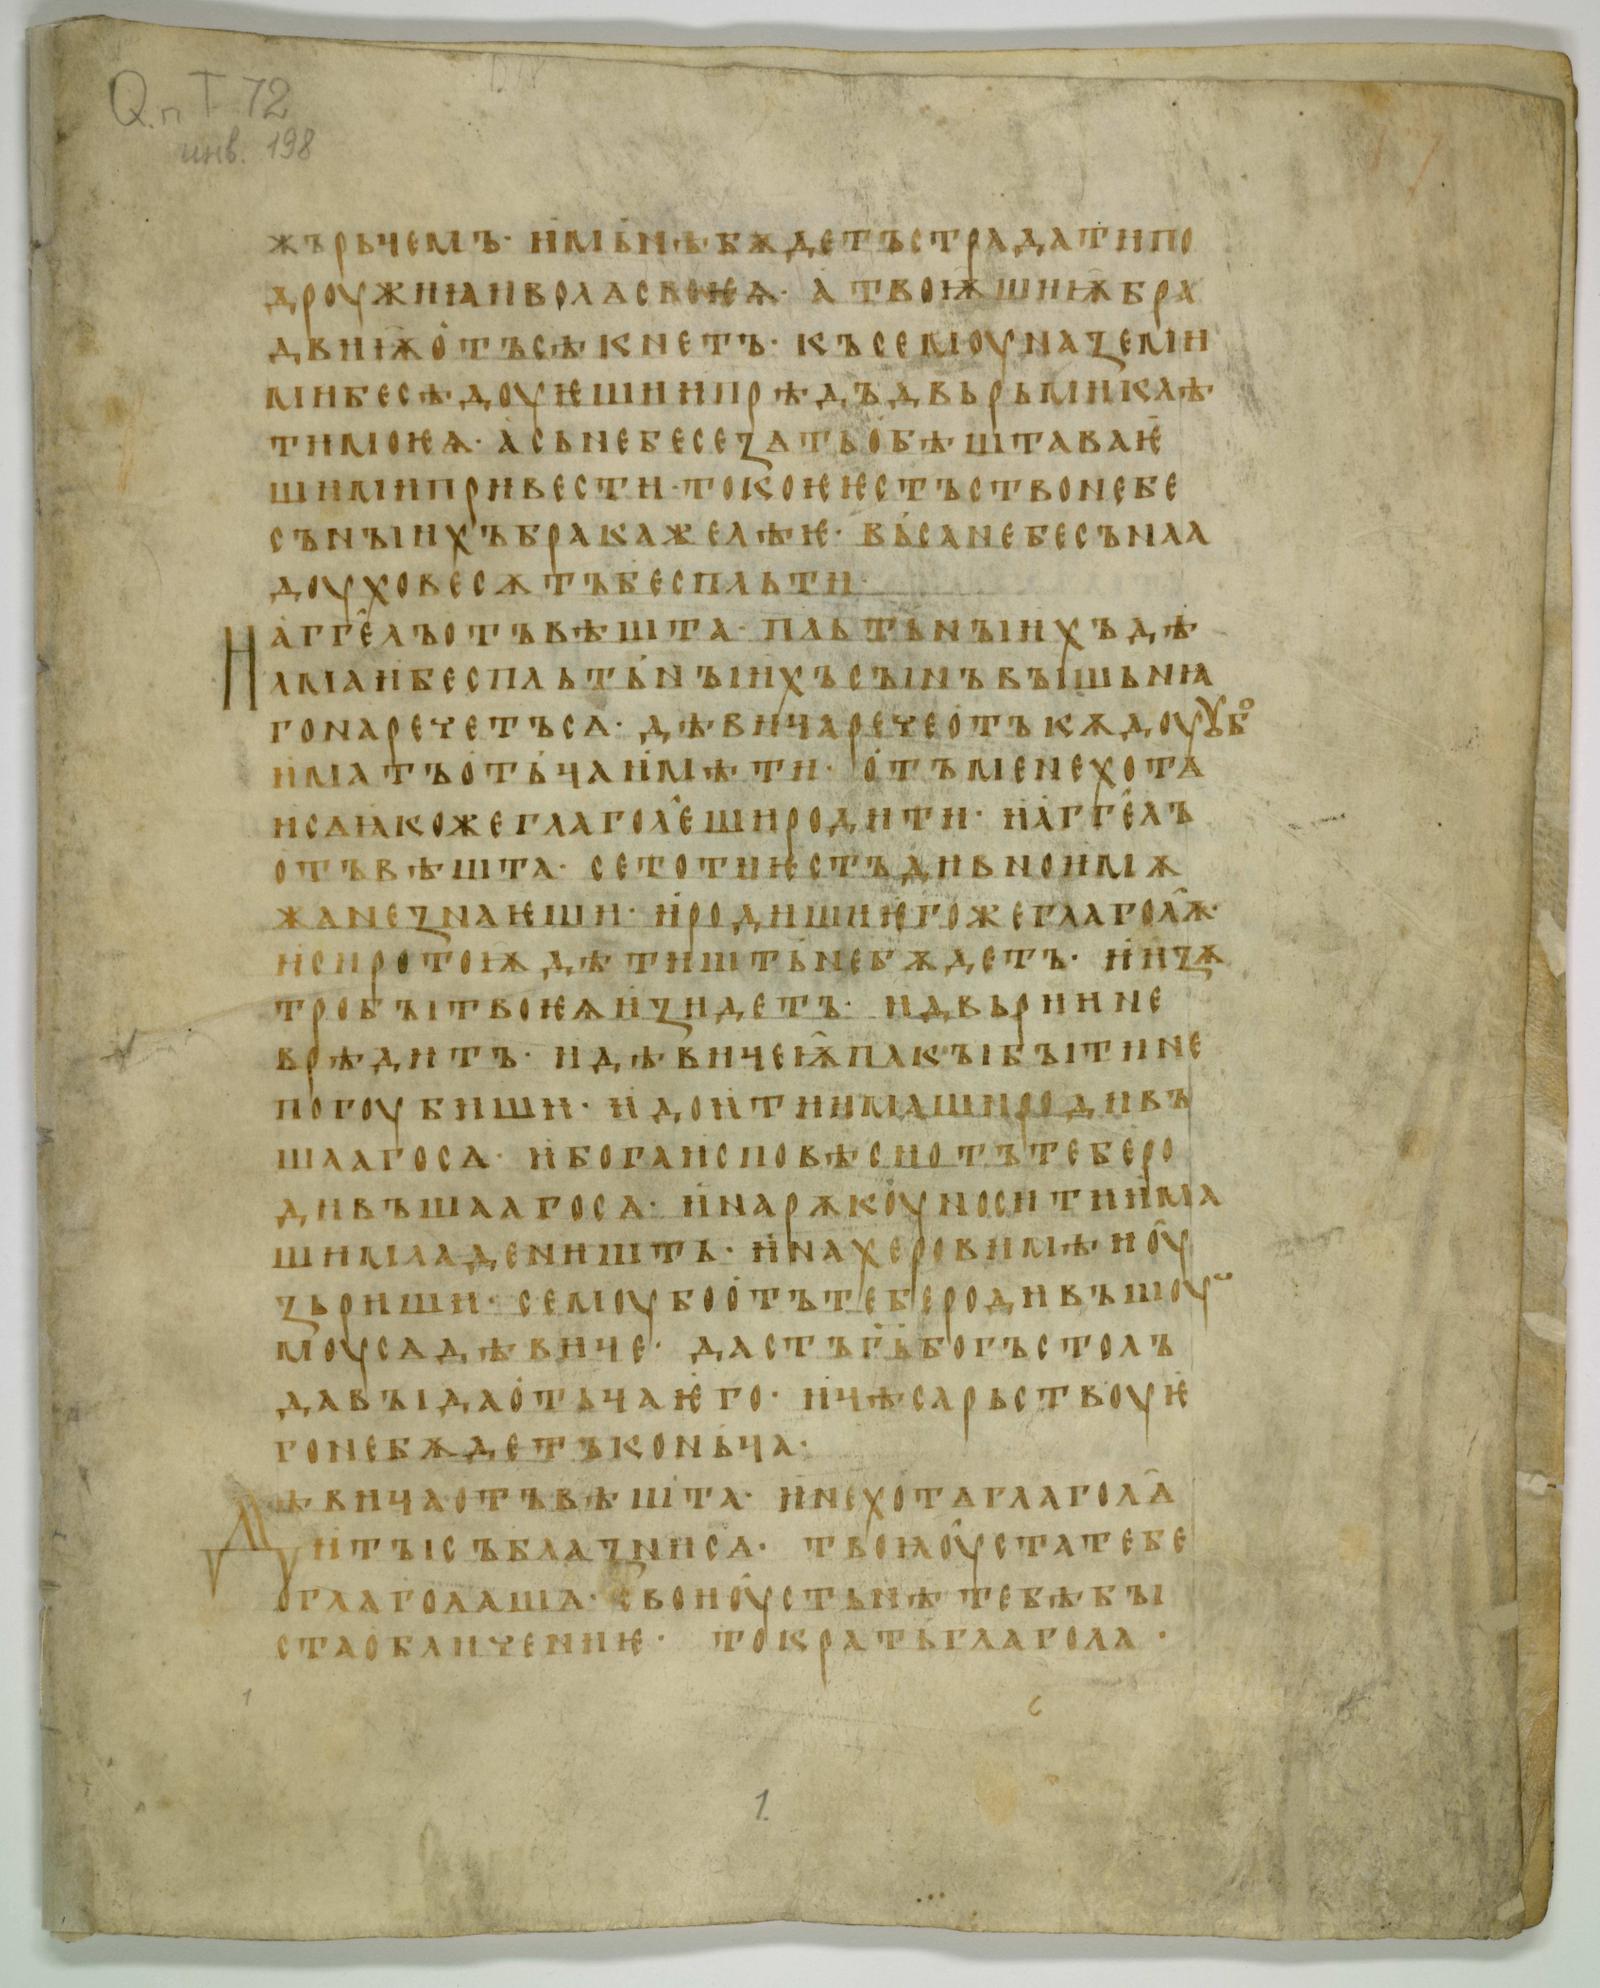 Q.п I 72
инв. 198
жърьчемъ· имьнѣбѫдетъстрадатипо
дроужиꙗиволасвоѥѧ· а твоѭшиѭбра
двиѭотъсѣкнетъ· къ семоуназеми
мибесѣдоуѥшиипрѣдъдвьрьмиклѣ
тимоѥѧ· а сьнебесезатьобѣштаваѥ
шимипривести· токоѥѥстъствонебе
сънꙑихъбракажелѣѥ· вьсанебесънаа
доуховесѫтъбесплъти·
И аггелъотъвѣшта· плътьнꙑихъдѣ
лмаибесплътьнꙑихъсꙑнъвꙑшьнꙗ
гонаречетъса· дѣвичаречеотъкѫдоуубо
иматъотьчаимѣти· отъменехота
исаꙗкожеглаголеширодити· иаггелъ
отъвѣшта· сетотиѥстъдивьноимѫ
жанезнаѥши· иродишиѥгожеглаголѭ·
исиротоѭдѣтиштьнебѫдетъ· иизѫ
тробꙑтвоѥѧизидетъ· идвьриине
врѣдитъ· идѣвичеѭпакꙑбꙑтине
погоубиши· идоитиимаширодивъ
шаагоса· ибогаисповѣсиотътеберо
дивъшаагоса· инарѫкоуноситиима
шимладеништь· инахеровимѣноу
зьриши· семоубоотътеберодивъшоу
моусадѣвиче· дастъгьбогъстолъ
давꙑдаотьчаѥго· ичѣсарьствоуѥ
гонебѫдетъконьча·
Дѣвичаотъвѣшта· инехотаглагола
итꙑсъблазниса· твоꙗоустатебе
оглаголаша· своиоустьнѣтебѣбꙑ
стаобличениѥ· тократьглагола·
1